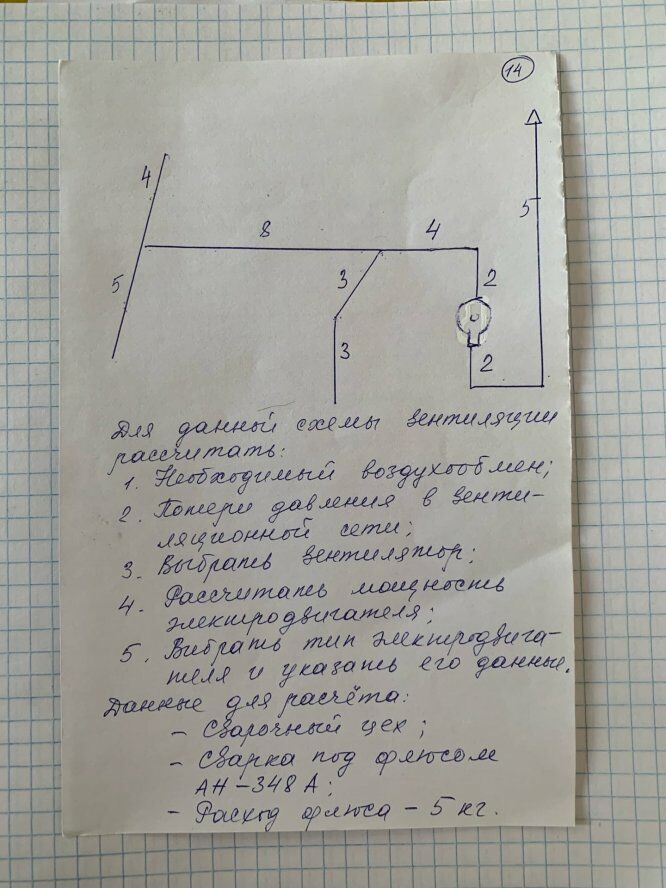 14
4
8
4
5
5
3
2
3
2
Для данной схемы вентиляции
рассчитать:
1. Необходимый воздухообмен;
2. Потери давления в венти-
ляционной сети;
3. Выбрать вентилятор;
4. Рассчитать мощность
электродвигателя;
5. Выбрать тип электродвига-
теля и указать его данные.
Данные для расчёта:
- Сварочный цех;
- Сварка под флюсом
АН-348А;
- Расход флюса - 5 кг.